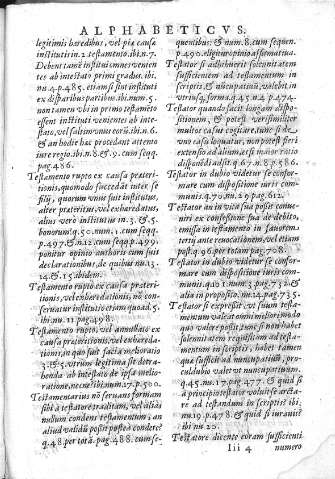 ALPHABETICVS.
legitimis hæredibus, vel piæ causæ
instituti sint in.2.testamento ibi.n.7.
Debent tamē instituti in eis venien
tes ab intestato primi gradus. ibi.
nu.4.p.485. etiam si sint instituti
ex disparibus partibus ibi.num.5.
non tamen vbi in primo testamēto
essent instituti venientes ab inte-
stato, vel saltim vnus eorū ibi.n.6.
& an hodie hæc procedant attento
iure regio.ibi.n.8.& 9. cum seqq.
pag.486.
Testamento rupto ex causa præteri-
tionis, quomodo succedāt inter se
filij, quorum vnus fuit institutus,
alter præteritus, vel exhæredatus,
alius vero institutus in.3.& 5.
bonorum.q.30.num.1.cum seqq.
p.497.& n.12.cum seqq.p.499.
ponitur opinio authoris cum suis
declarationibus, de quibus nu.13.
14.& 15.ibidem.
Testamento rupto ex causa præteri-
tionis, vel exhæredationis, nō con-
seruatur institutio etiam quoad.5.
ibi.nu.11.pag.498.
Testamento rupto, vel annullato ex
causa præteritionis, vel exhæreda-
tionis, an quo sint facta melioratio
3.& 5. vtrum legitima sit detra-
henda ab intestato de ipsa melio-
ratione, nec ne ibi.num.17.p.500.
Testamentarius nō seruans formam
sibi à testatore traditam, vel aliās
nullum condens testamentum, an
aliud validū possit postea condere?
q.48.per totā.pag.488. cum se-
quentibus: & num.8.cum sequen.
p.490.eligitur opinio affirmatiua.
Testator si adhibuerit solennitatem
sufficientem ad testamentum in
scriptis, & nuncupatiuū, valebit in
vtriusq; forma.q.45.n.4.p.474.
Testator quando facit longam dispo-
sitionem, & potest verisimiliter
multos casus cogitare, tunc si de
vno casu loquatur, non potest fieri
extensio ad alium, & ex maior ratio
disponēdi adsit.q.67.n.8.p.586.
Testator in dubio videtur se confor-
mare cum dispositione iuris com-
munis.q.70.nu.29.pag.612.
Testator an in vita sua possit conue-
niri ex confessione sua de debito,
emissa in testamento in fauorem
tertij ante reuocationem, vel etiam
post.q.96.per totam pag.708.
Testator in dubio videtur se confor-
mare cum dispositione iuris com-
munis.q.101.num.3.pag.732.&
alia in proposito.nu.14.pag.735.
Testator si expressit, vt suum testa-
mentum valeat omni meliore modo
quo valere possit, tunc si non habet
solennitatem requisitam ad testa-
mentum in scriptis, habet tamen
quæ sufficit ad nuncupatiuū, proq;
condubio valet vt nuncupatiuum.
q.45.nu.17.pag.477.& quid si
à principio testator voluisset arcta-
re ad testandum in scriptis ibi.
nu.19.p.478.& quid si iurauit?
ibi nu.20.
Testatore dicente coram sufficienti
Iii 4 numero